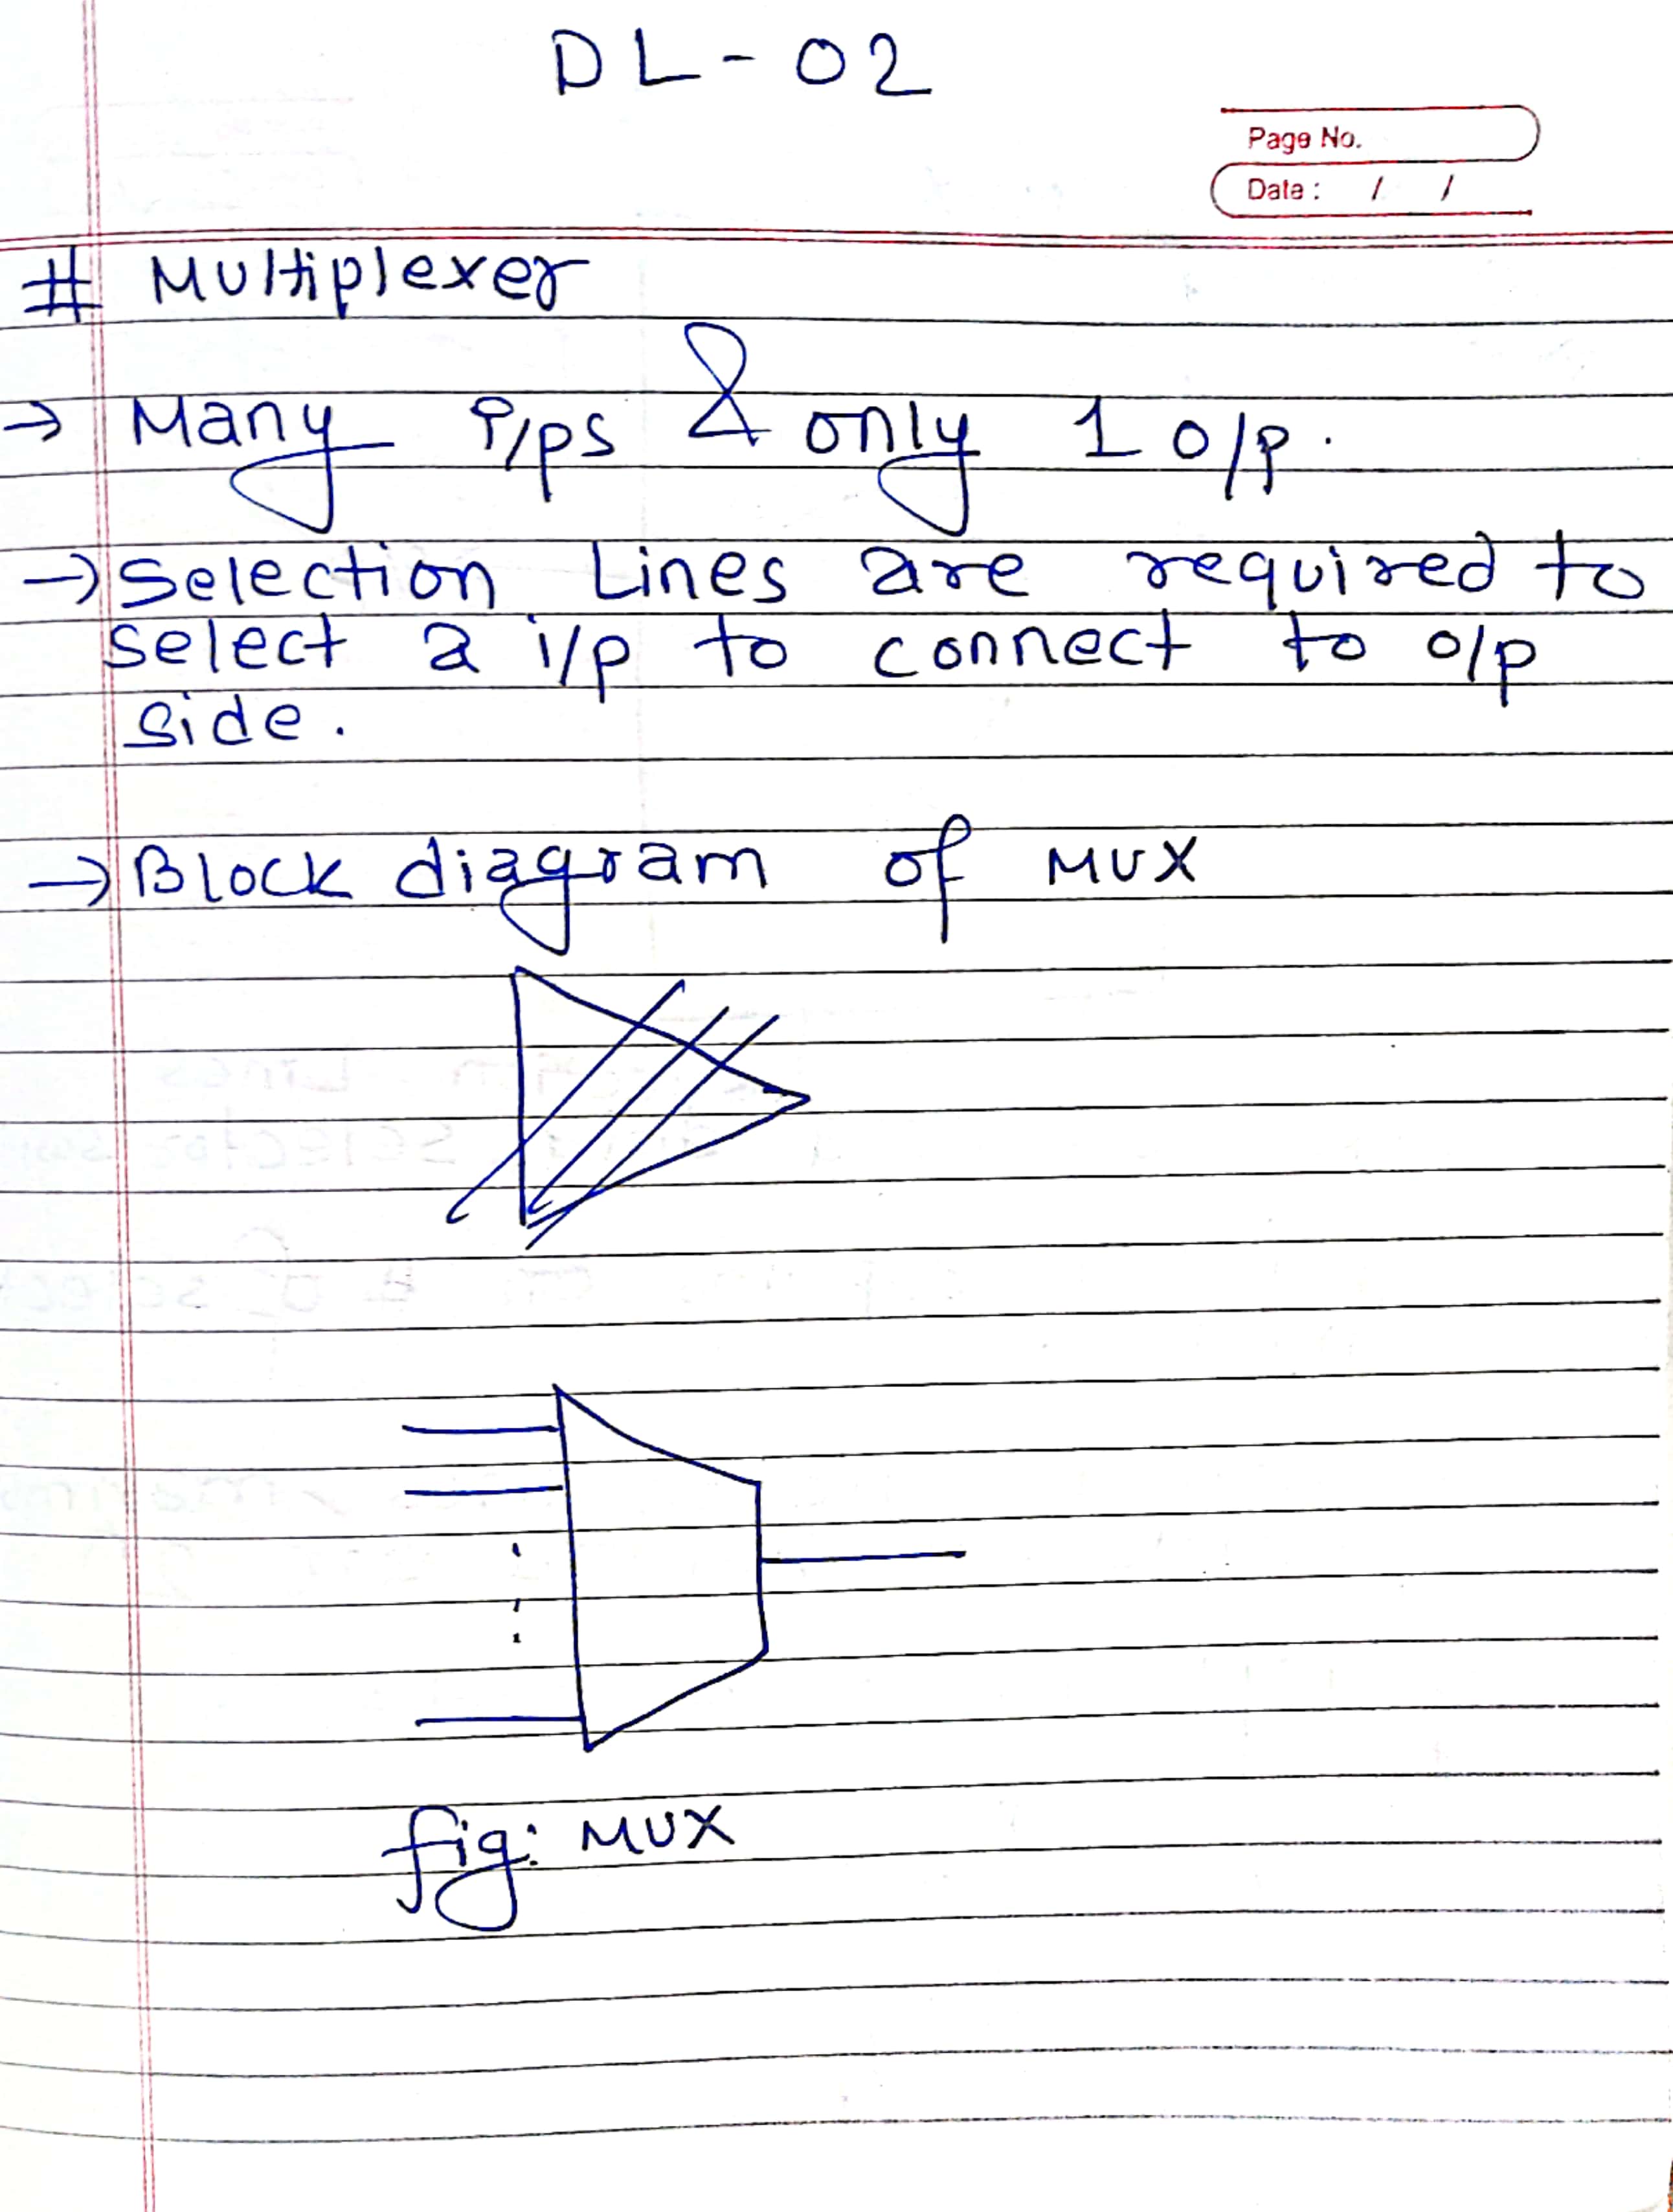 DL - 02
Page No.
Date : / /
# Multiplexer
→ Many i/ps & only 1 o/p.
→ Selection Lines are required to
select a i/p to connect to o/p
side.
→ Block diagram of MUX
fig: MUX